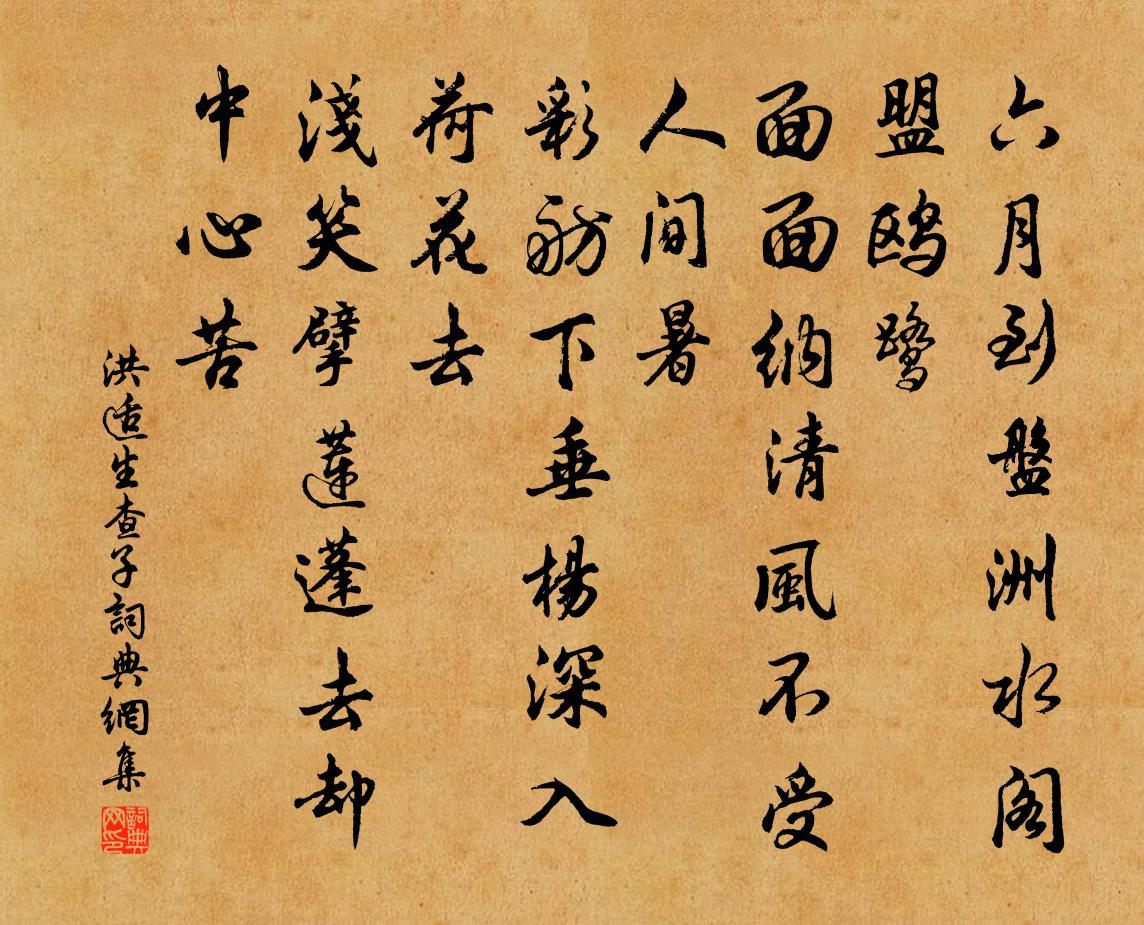 六月到盤洲水閣
盟鷗鷺
面面納清風不受
人間暑
彩舫下垂楊深入
荷花去
淺笑擘蓮蓬去却
中心苦
洪适生查子詞典網集
詞典网印